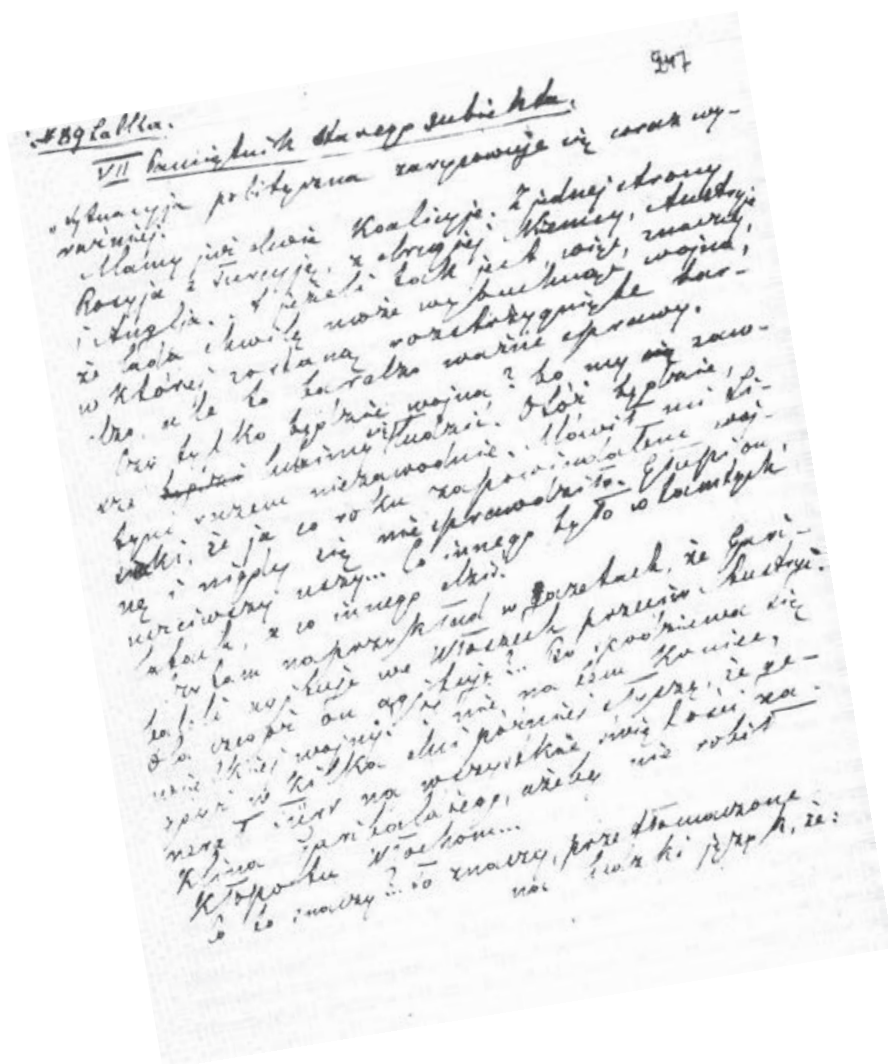 247
№ 89 Lalka.
VII Pamiętnik starego subiekta.
„Sytuacyja polityczna zarysowuje się coraz wy-
raźniej.
Mamy już dwie koalicyje. Z jednej strony
Rosyja z Turcyją, z drugiej Niemcy, Austryja
i Anglia. A jeżeli tak jest, więc, znaczy,
że lada chwilę może wybuchnąć wojna,
w której zostaną rozstrzygnięte bar-
dzo, ale to bardzo ważne sprawy.
Czy tylko będzie wojna? bo my się zaw-
sze lubimy łudzić. Otóż będzie,
tym razem niezawodnie. Mówił mi Li-
siecki, że ja co roku zapowiadałem woj-
nę i nigdy się nie sprawdziło. Głupi on
uczciwszy uszy... Co innego było w tamtych
latach, a co innego dziś.
Czytam naprzykład w gazetach, że Gari-
baldi agituje we Włoszech przeciw Austryi.
Dla czegóż on agituje?... Bo spodziewa się
wielkiej wojny. I nie na tem koniec,
gdyż w kilka dni później słyszę, że ge-
nerał Türr na wszystkie świętości za-
klina Garibaldiego, ażeby nie robił
kłopotu Włochom...
Co to znaczy?... To znaczy, przetłomaczone
na ludzki język, że: